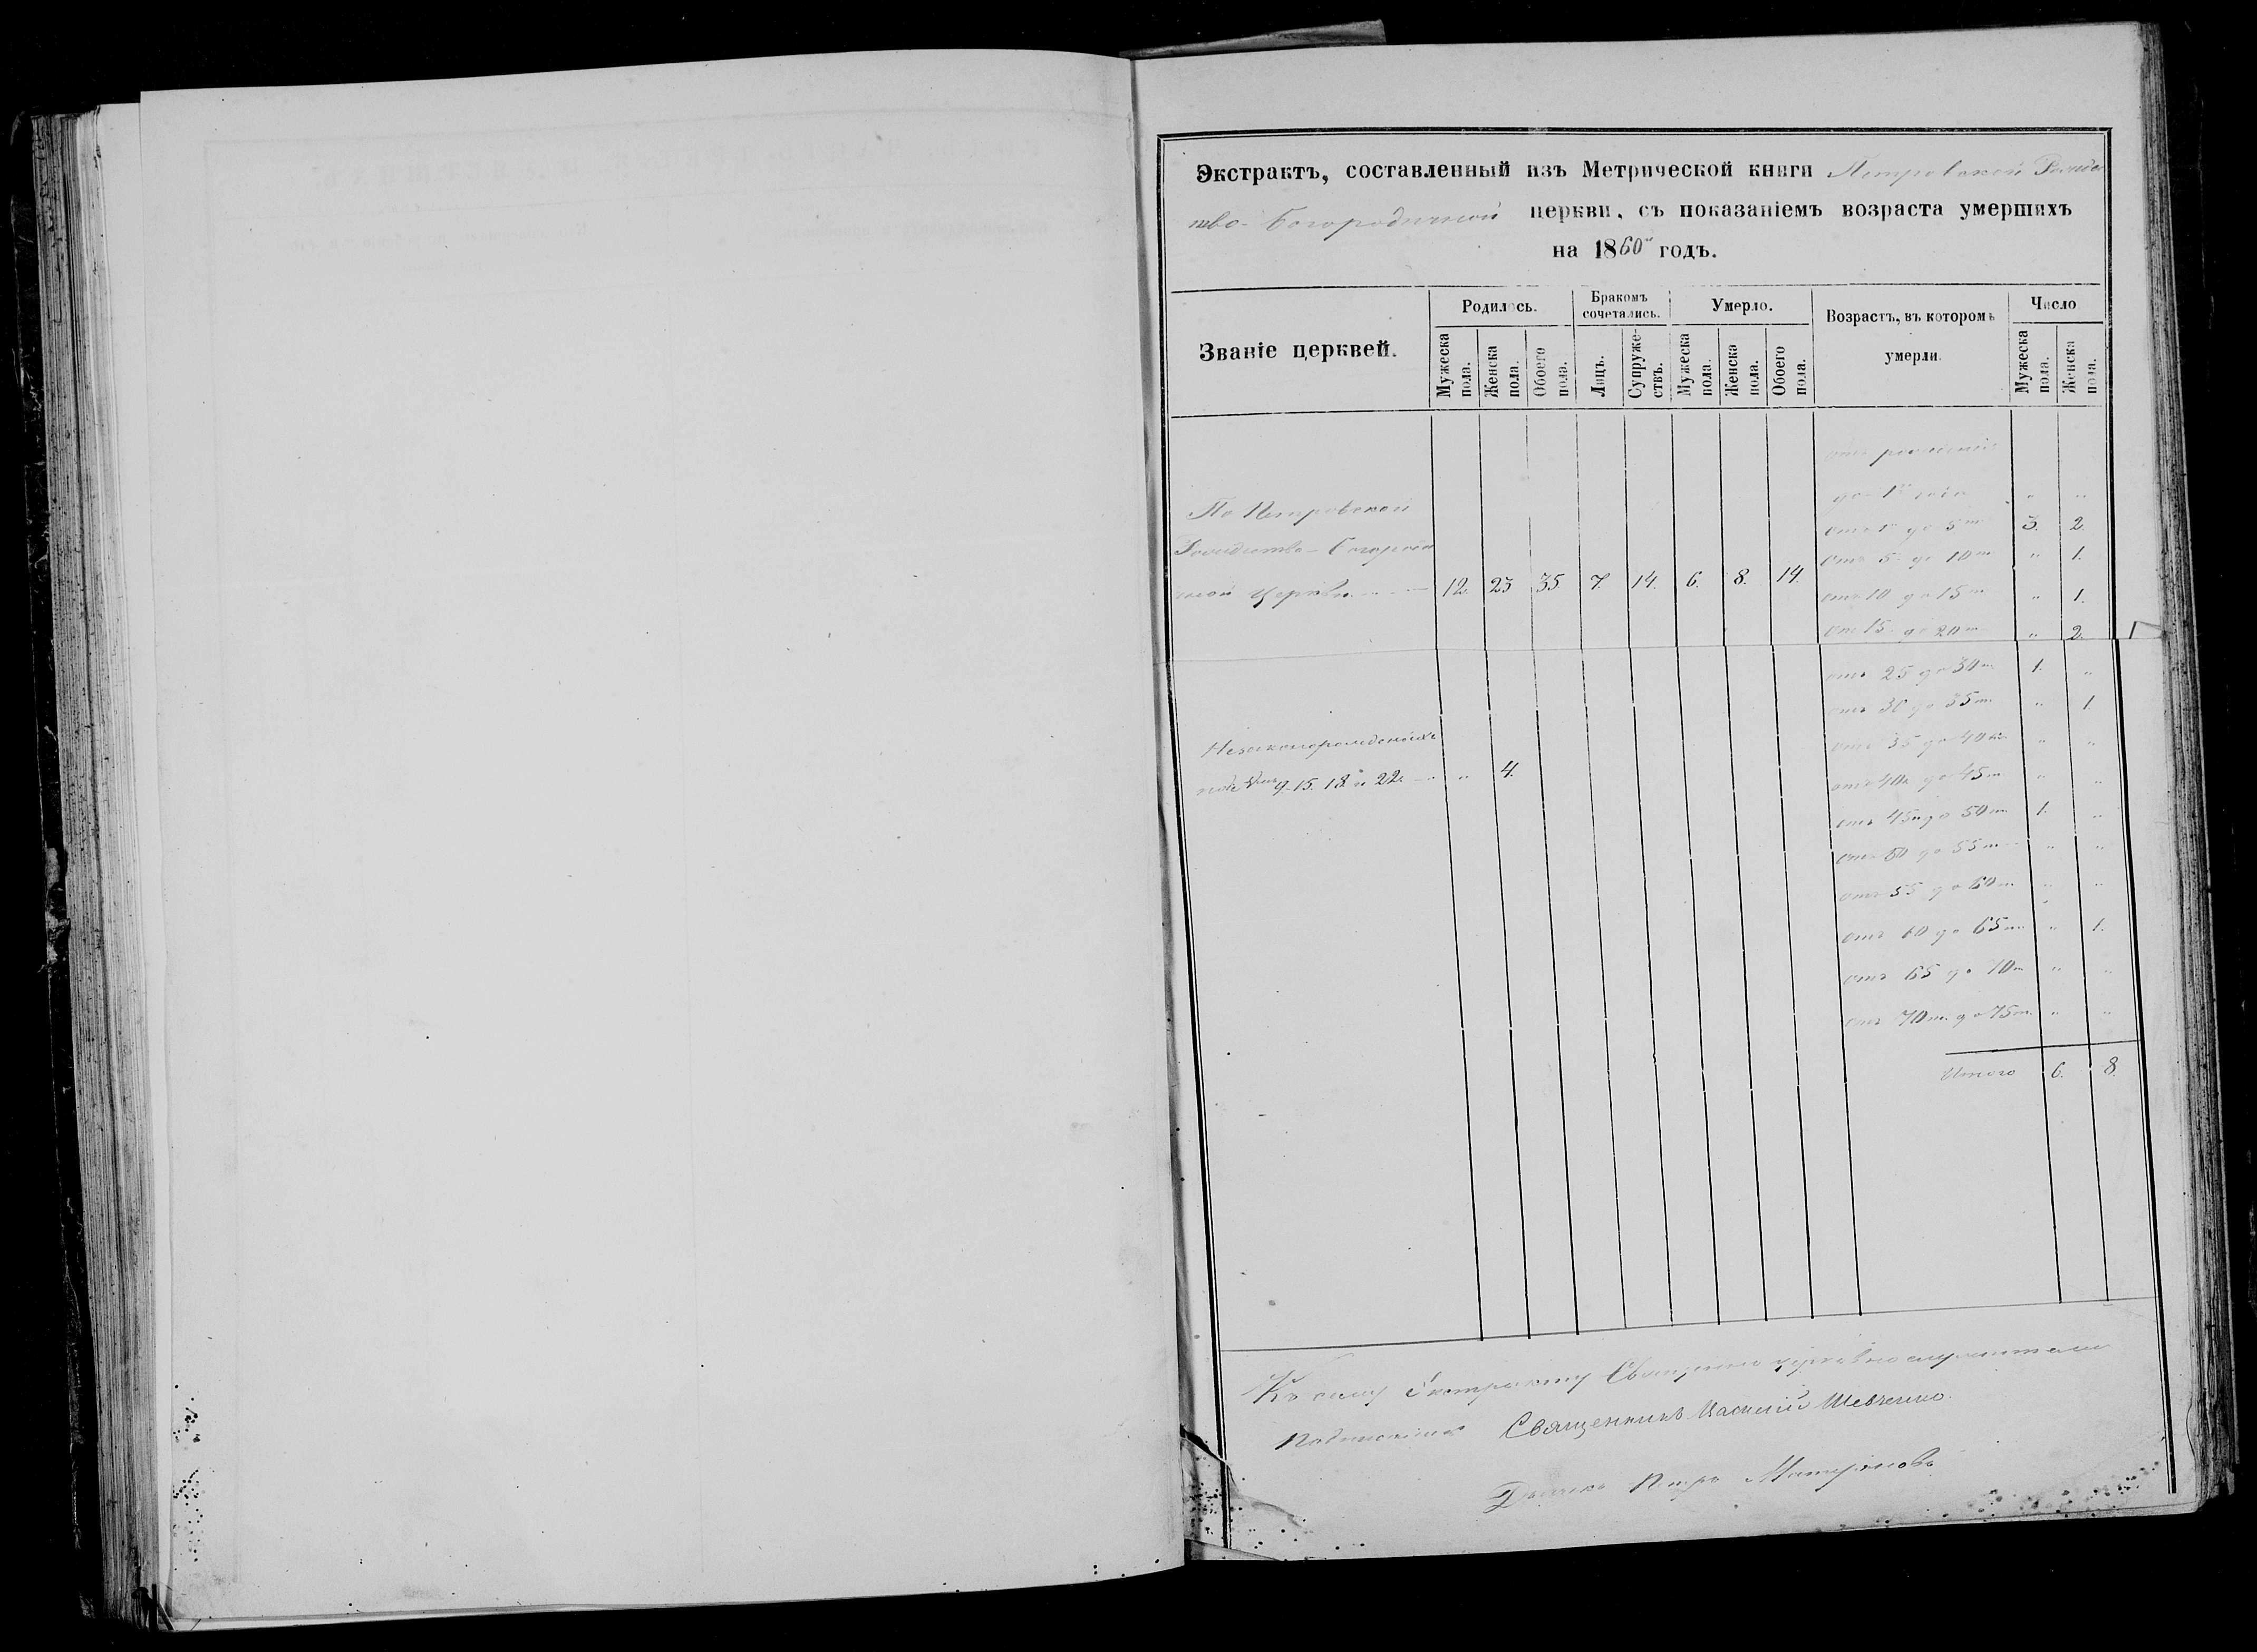 Экстрактъ, составленный изъ Метрической книги Петровской Рождес
тво-Богородичной церкви, съ показаніемъ возраста умершихъ
на 1860й годъ.
Званіе церквей.
Родилось.
Бракомъ сочетались.
Умерло.
Возрастъ, въ которомъ умерли.
Число
Мужеска пола.
Женска пола.
Обоего пола.
Лицъ.
Супружествъ.
Мужеска пола.
Женска пола.
Обоего пола.
Мужеска пола.
Женска пола.
отъ рожденія
до 1го года " "
По Петровской
отъ 1 до 5ти 3. 2.
Рождество-Богороди
отъ 5 до 10ти " 1.
чной Церкви 12. 23 35 7. 14. 6. 8. 14.
отъ 10 до 15ти " 1.
отъ 15 до 20ти " 2.
отъ 25 до 30ти 1. "
отъ 30 до 35ти " 1.
Незаконорожденныхъ
отъ 35 до 40ка " "
9. 15. 18 и 22 " 4.
отъ 40ка до 45ти " "
отъ 45ти до 50ти 1. "
отъ 50 до 55ти " "
отъ 55 до 60ти " "
отъ 60 до 65ти " 1.
отъ 65 до 70ти " "
отъ 70ти до 75ти " "
Итого 6. 8.
Къ сему Екстракту Священно церковнослужители
подписались Священникъ Василій Шевченко
Дьячекъ Петръ